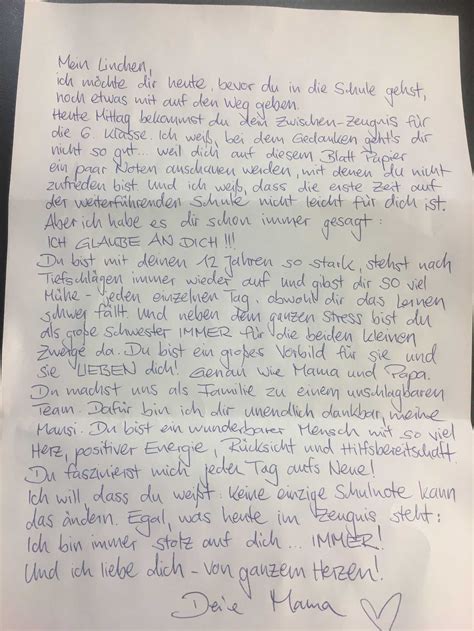 Mein Linchen,
ich möchte dir heute, bevor du in die Schule gehst,
noch etwas mit auf den Weg geben.
Heute Mittag bekommst du dein Zwischen-Zeugnis für
die 6. Klasse. Ich weiß, bei dem Gedanken geht's dir
nicht so gut... weil dich auf diesem Blatt Papier
ein paar Noten anschauen werden, mit denen du nicht
zufrieden bist und ich weiß, dass die erste Zeit auf
der weiterführenden Schule nicht leicht für dich ist.
Aber ich habe es dir schon immer gesagt:
ICH GLAUBE AN DICH!!!
Du bist mit deinen 12 Jahren so stark, stehst nach
Tiefschlägen immer wieder auf und gibst dir SO viel
Mühe - jeden einzelnen Tag, obwohl dir das Lernen
schwer fällt und neben dem ganzen Stress bist du
als große Schwester IMMER für die beiden kleinen
Zwerge da. Du bist ein großes Vorbild für sie und
sie LIEBEN dich! Genau wie Mama und Papa.
Du machst uns als Familie zu einem unschlagbaren
Team. Dafür bin ich dir unendlich dankbar, meine
Mausi. Du bist ein wunderbarer Mensch mit so viel
Herz, positiver Energie, Rücksicht und Hilfsbereitschaft.
Du faszinierst mich jeden Tag aufs Neue!
Ich will, dass du weißt: keine einzige Schulnote kann
das ändern. Egal, was heute im Zeugnis steht:
Ich bin immer stolz auf dich... IMMER!
Und ich liebe dich - von ganzem Herzen!
Deine Mama